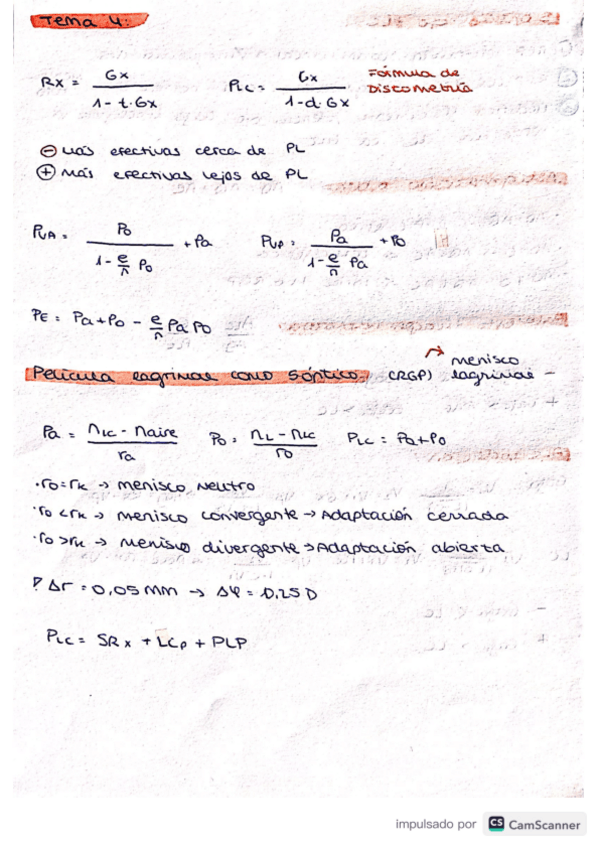 Tema 4:
Rx = Gx / 1 - t·Gx    PLC = Gx / 1 - d·Gx    Fórmula de Distometría
⊖ más efectivas cerca de PL
⊕ más efectivas lejos de PL
PVA = Po / 1 - e/n Po + Pa    PVP = Pa / 1 - e/n Pa + Po
PE = Pa + Po - e/n Pa Po
Película lagrimal como S.óptico. (RGP) → menisco lagrimal -
Pa = nLC - naire / ra    Po = nL - nLC / ro    PLC = Pa + Po
·ro = rk → menisco neutro
·ro < rk → menisco convergente → Adaptación cerrada
·ro > rk → menisco divergente → Adaptación abierta
Δr = 0,05 mm → Δφ = 0,25 D
PLC = SRx + LCP + PLP
impulsado por CS CamScanner